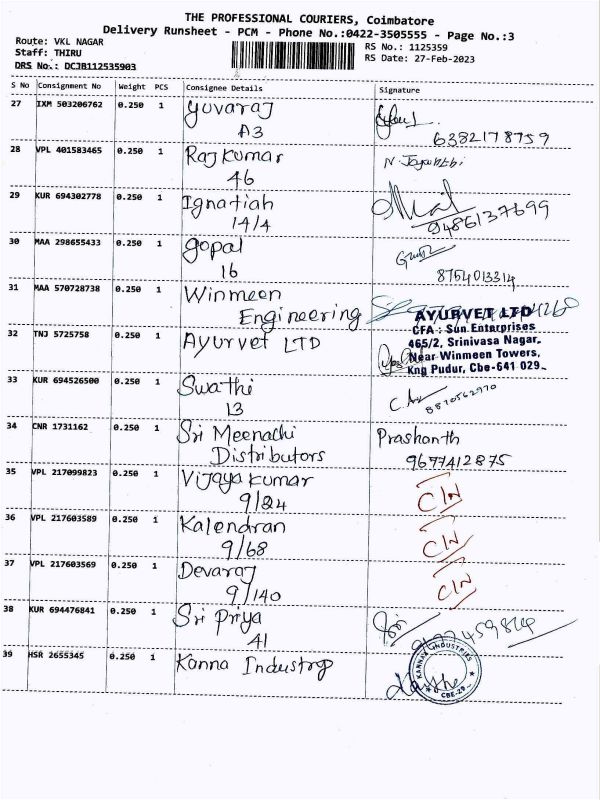 THE PROFESSIONAL COURIERS, Coimbatore
Delivery Runsheet - PCM - Phone No.:0422-3505555 - Page No.:3
Route: VKL NAGAR
RS No.: 1125359
Staff: THIRU
RS Date: 27-Feb-2023
DRS No.: DCJB112535903
S No Consignment No Weight PCS Consignee Details Signature
27 IXM 503206762 0.250 1 Yuvaraj
A3 6382178759
28 VPL 401583465 0.250 1 Rajkumar
46
29 KUR 694302778 0.250 1 Ignatiah
14/4 9486137699
30 MAA 298655433 0.250 1 Gopal
16 8754013314
31 MAA 570728738 0.250 1 Winmeen
Engineering
32 TNJ 5725758 0.250 1 Ayurvet LTD
AYURVET LTD
CFA : Sun Enterprises
465/2, Srinivasa Nagar,
Near Winmeen Towers,
Kng Pudur, Cbe-641 029
33 KUR 694526500 0.250 1 Swathi
13 8870562970
34 CNR 1731162 0.250 1 Sri Meenachi Prashanth
Distributors 9677412875
35 VPL 217099823 0.250 1 Vijayakumar
9/124 C/N
36 VPL 217603589 0.250 1 Kalendran
9/68 C/N
37 VPL 217603569 0.250 1 Devaraj
9/140 C/N
38 KUR 694476841 0.250 1 Sri Priya
41
39 HSR 2655345 0.250 1 Kanna Industrp
KANNA INDUSTRIES
CBE-29